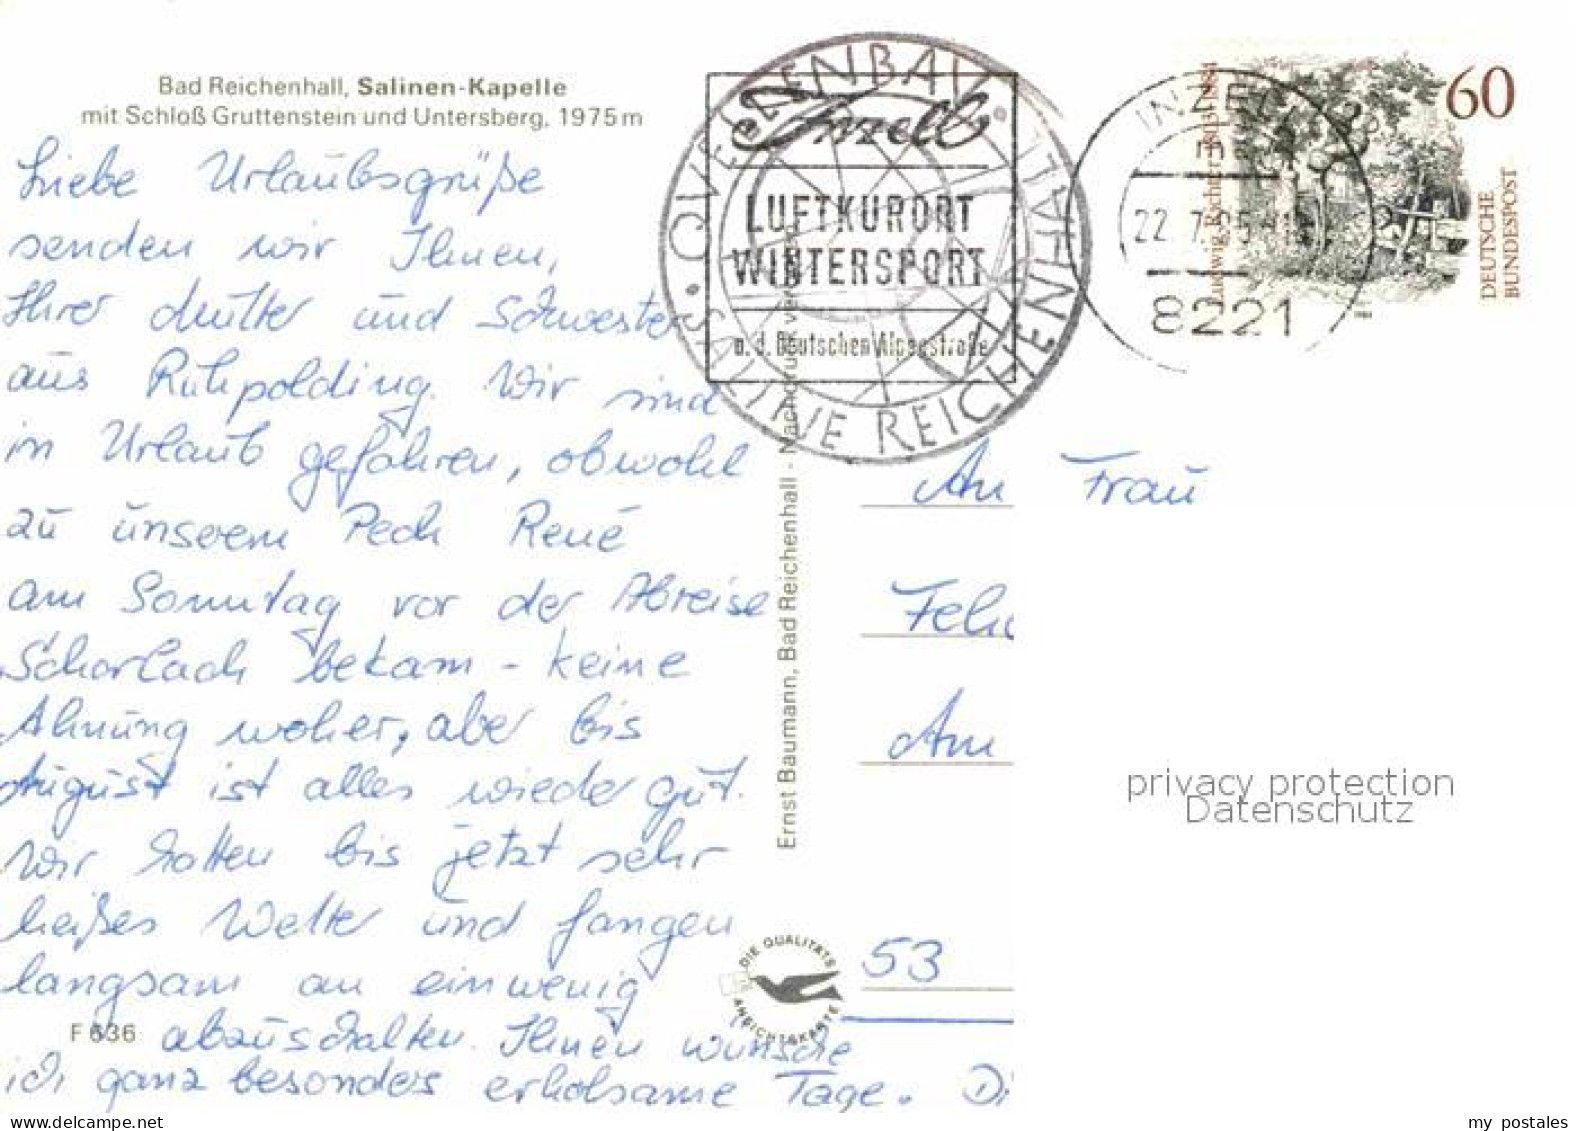 Bad Reichenhall, Salinen-Kapelle
mit Schloß Gruttenstein und Untersberg, 1975 m
Liebe Urlaubsgrüße
senden wir Ihnen,
Ihrer Mutter und Schwester
aus Ruhpolding. Wir sind
in Urlaub gefahren, obwohl
zu unserem Pech René
am Sonntag vor der Abreise
Scharlach bekam - keine
Ahnung woher, aber bis
August ist alles wieder gut.
Wir hatten bis jetzt sehr
heißes Wetter und fangen
langsam an ein wenig
abzuschalten. Ihnen wünsche
ich ganz besonders erholsame Tage. Di
F 636
Ernst Baumann, Bad Reichenhall - Nachdruck verboten
QUELLENBAU · SALINE REICHENHALL
Inzell
LUFTKURORT
WINTERSPORT
a. d. Deutschen Alpenstraße
INZELL
22.7.85
8221
60
DEUTSCHE
BUNDESPOST
Ludwig Richter
An Frau
Am
53
DIE QUALITÄTS
ANSICHTSKARTE
privacy protection
Datenschutz
my postales